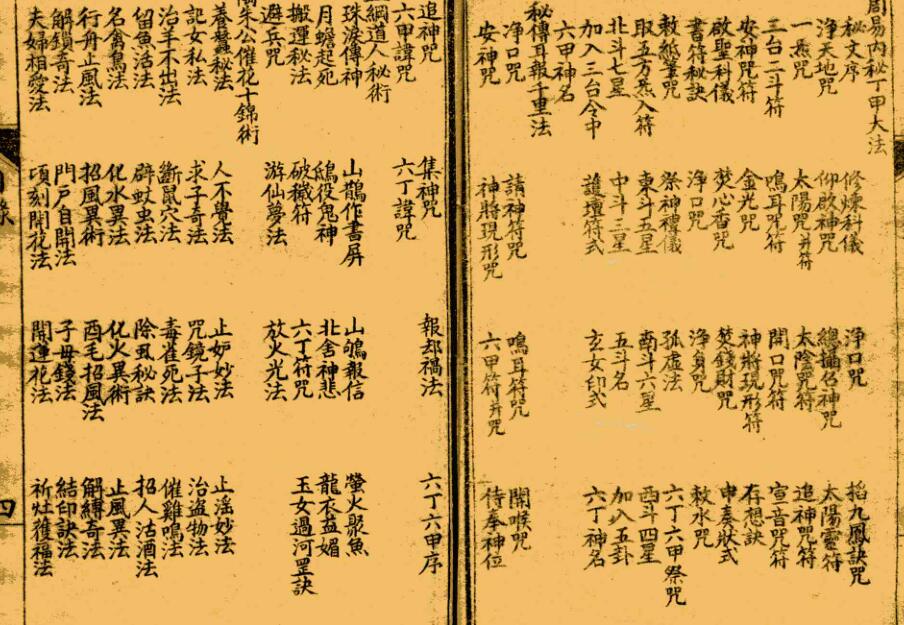 周易內秘丁甲大法
秘文序 修煉科儀 淨口咒 搯九鳳訣咒
淨天地咒 仰啟神咒 總攝召神咒 太陽靈符
一炁咒 太陽咒并符 太陰咒符 追神咒符
三台二斗符 鳴耳咒符 開口咒符 宣音咒符
安神咒符 金光咒 神將現形符 存想訣
啟聖科儀 焚心香咒 焚錢財咒 申奏狀式
書符秘訣 淨口咒 淨身咒 敕水咒
敕紙筆咒 祭神禮儀 孤虛法 六丁六甲祭咒
取五方炁入符 東斗五星 南斗六星 西斗四星
北斗七星 中斗三星 五斗名 加八五卦
加入三台令中 護壇符式 玄女印式 六丁神名
六甲神名
秘傳耳報千里法
淨口咒 請神符咒 鳴耳符咒 開喉咒
安神咒 神將現形咒 六甲符并咒 侍奉神位
追神咒 集神咒 報却禍法 六丁六甲序
六甲諱咒 六丁諱咒
綱道人秘術
珠淚傳神 山鵲作書屏 山鴝報信 螢火聚魚
月蟾起死 鴟役鬼神 北舍神悲 龍衣益媚
搬運秘法 破穢符 六丁符咒 玉女過河罡訣
避兵咒 游仙夢法 放火光法
朱公催花十錦術
養蠶秘法 人不覺法 止妒妙法 止淫妙法
記女私法 求子奇法 咒鏡子法 治盜物法
治羊不出法 斷鼠穴法 毒雀死法 催雞鳴法
留魚活法 辟蚊虫法 除虱秘訣 招人沽酒法
名禽鳥法 化水異法 化火異術 止風異法
行舟止風法 招風異術 酉毛招風法 解縛奇法
解鎖奇法 門戶自開法 子母錢法 結印訣法
夫婦相愛法 頃刻開花法 開蓮花法 祈灶獲福法
四